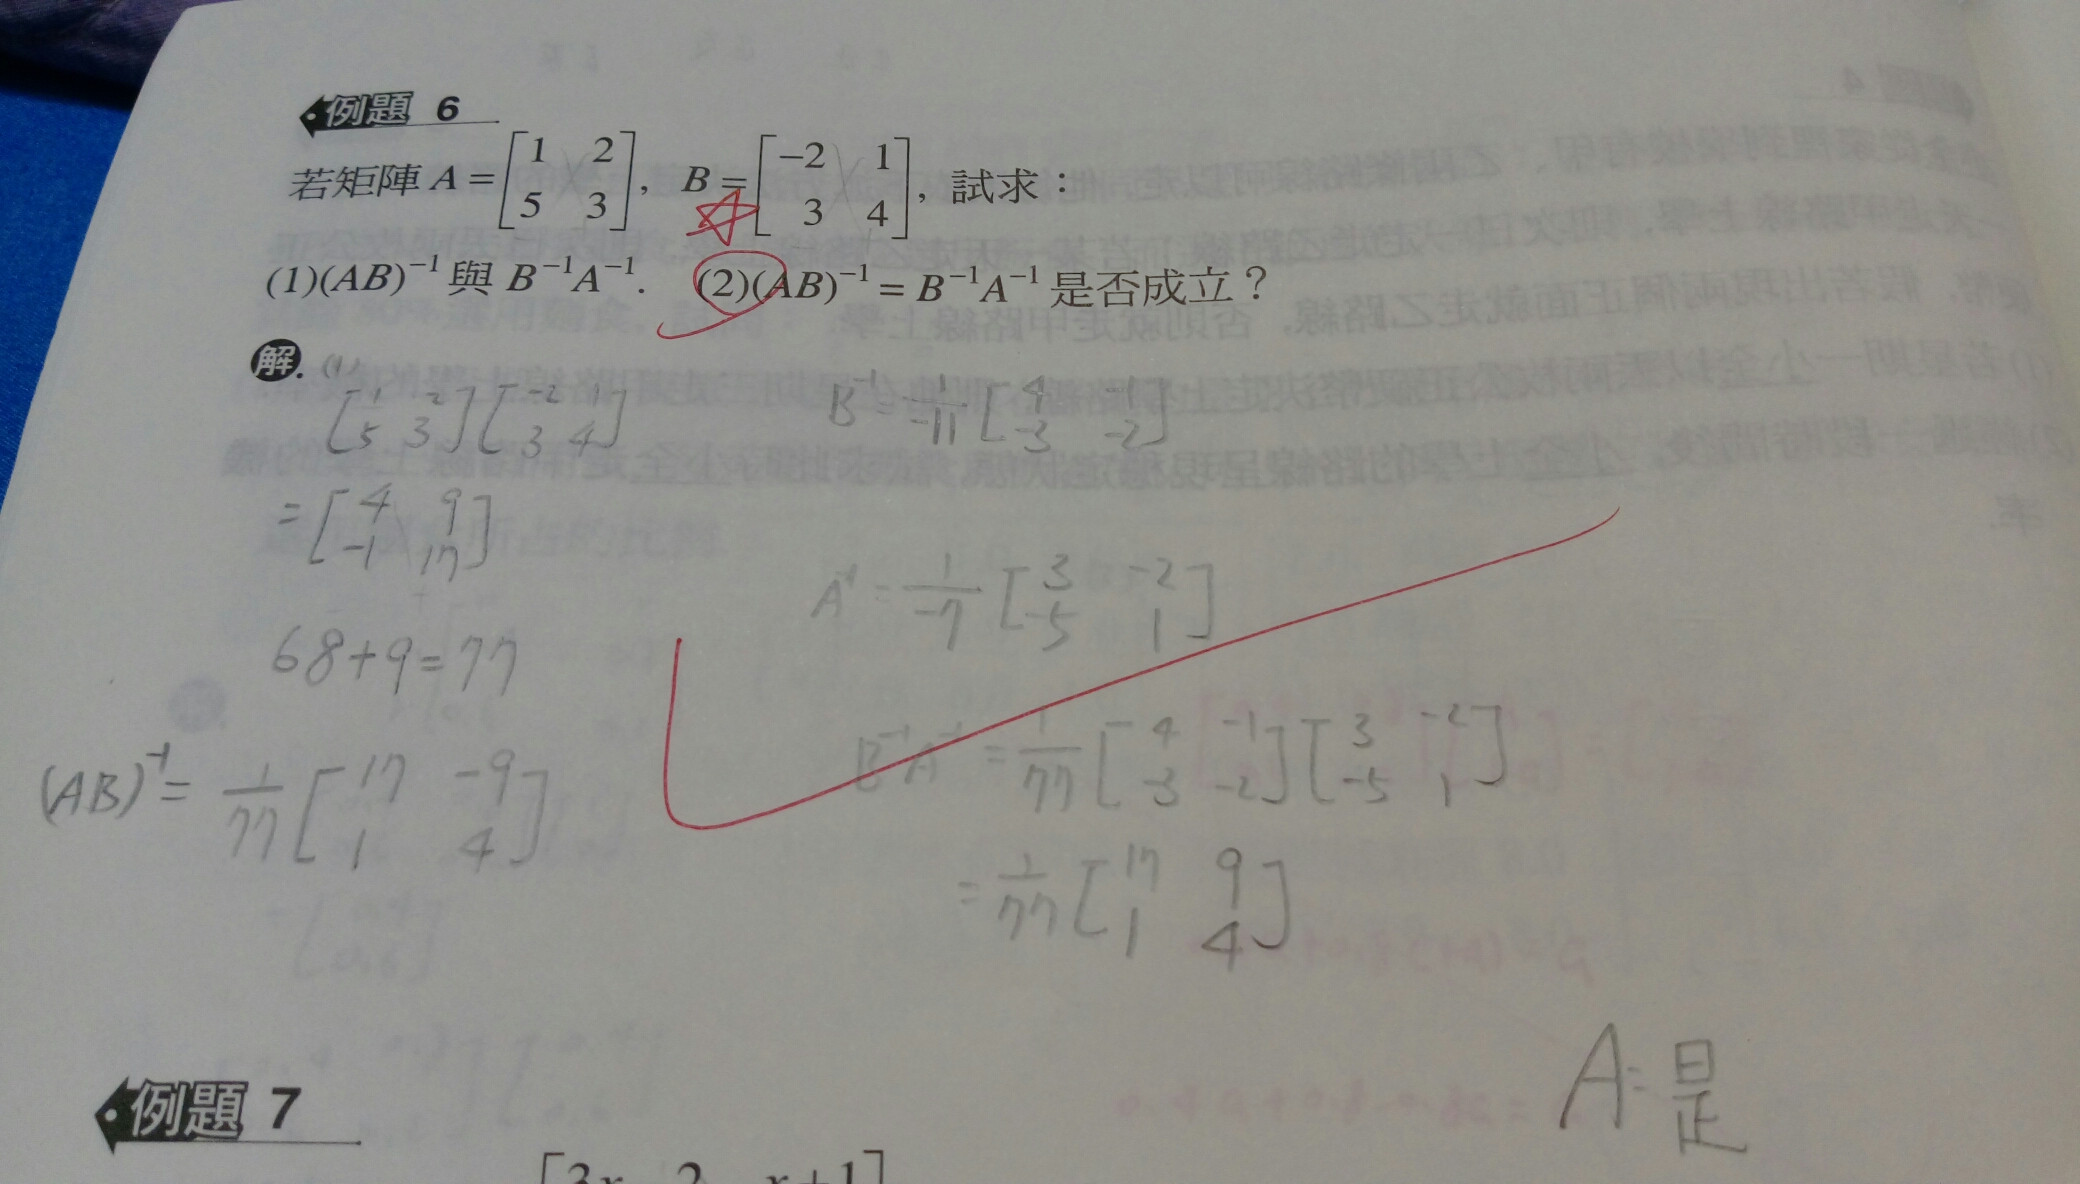 例題 6
若矩陣 A = [1 2 5 3], B = [-2 1 3 4], 試求：
(1)(AB)⁻¹ 與 B⁻¹A⁻¹. (2)(AB)⁻¹ = B⁻¹A⁻¹ 是否成立？
解. (1)
[1 2 5 3][-2 1 3 4]
= [4 9 -1 17]
68+9=77
(AB)⁻¹ = 1/77 [17 -9 1 4]
B⁻¹ = 1/-11 [4 -1 -3 -2]
A⁻¹ = 1/-7 [3 -2 -5 1]
B⁻¹A⁻¹ = 1/77 [4 -1 -3 -2][3 -2 -5 1]
= 1/77 [17 9 1 4]
A: 是
例題 7
[3x-2 x+1]